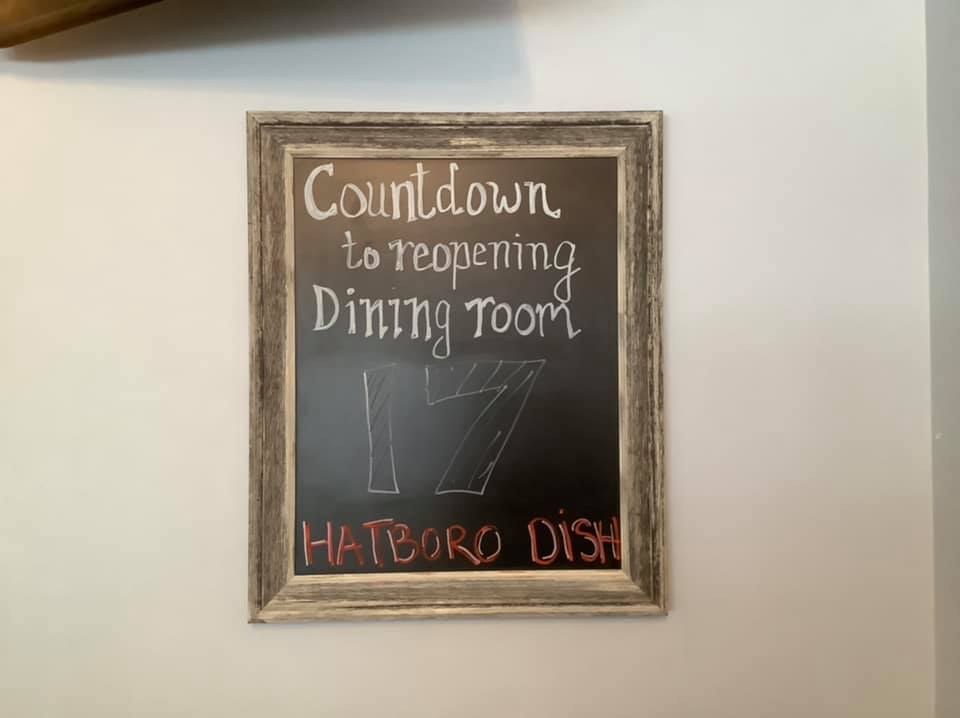 Countdown
to reopening
Dining room
17
HATBORO DiSH